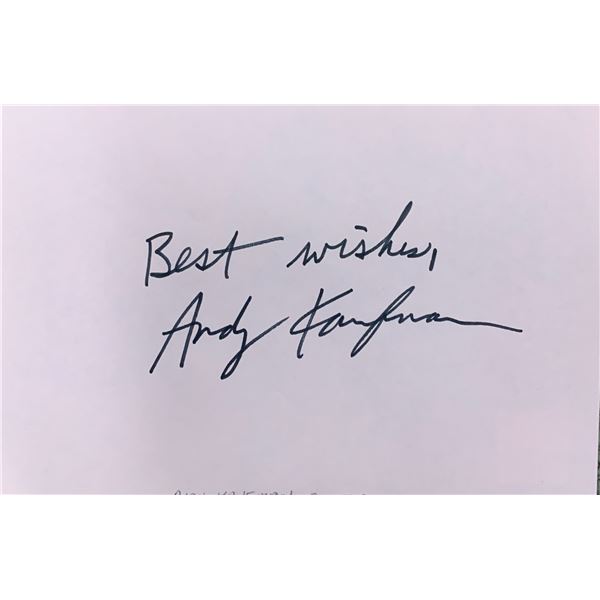 Best wishes,
Andy Kaufman